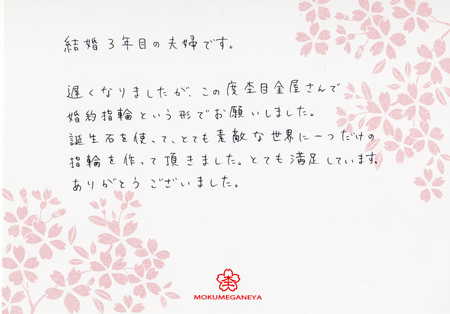 結婚3年目の夫婦です。
遅くなりましたが、この度杢目金屋さんで
婚約指輪という形でお願いしました。
誕生石を使って、とても素敵な世界に一つだけの
指輪を作って頂きました。とても満足しています。
ありがとうございました。
MOKUMEGANEYA